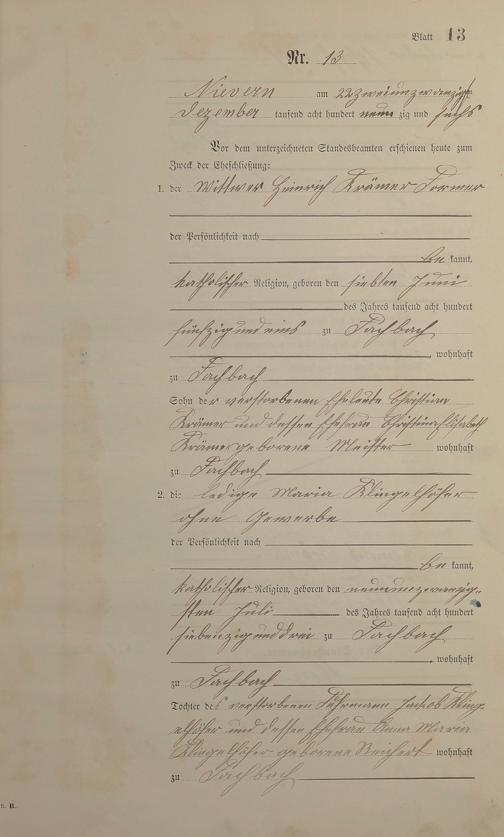 Blatt 13
Nr. 13
Nievern am 22 zweiundzwanzigsten
Dezember tausend acht hundert neunzig und sechs
Vor dem unterzeichneten Standesbeamten erschienen heute zum
Zweck der Eheschließung:
1. der Wittwer Heinrich Krämer Former
der Persönlichkeit nach
bekannt,
katholischer Religion, geboren den siebten Juni
des Jahres tausend acht hundert
fünfzig und eins zu Fachbach
, wohnhaft
zu Fachbach
Sohn der verstorbenen Eheleute Christian
Krämer und dessen Ehefrau Christina Elisabeth
Krämer geborene Meister wohnhaft
zu Fachbach
2. die ledige Maria Klingelhöfer
ohne Gewerbe
der Persönlichkeit nach
bekannt,
katholischer Religion, geboren den neunundzwanzig-
sten Juli des Jahres tausend acht hundert
siebenzig und drei zu Fachbach
, wohnhaft
zu Fachbach
Tochter des verstorbenen Fuhrmann Jacob Kling-
elhöfer und dessen Ehefrau Anna Maria
Klingelhöfer geborene Reichert wohnhaft
zu Fachbach
B.